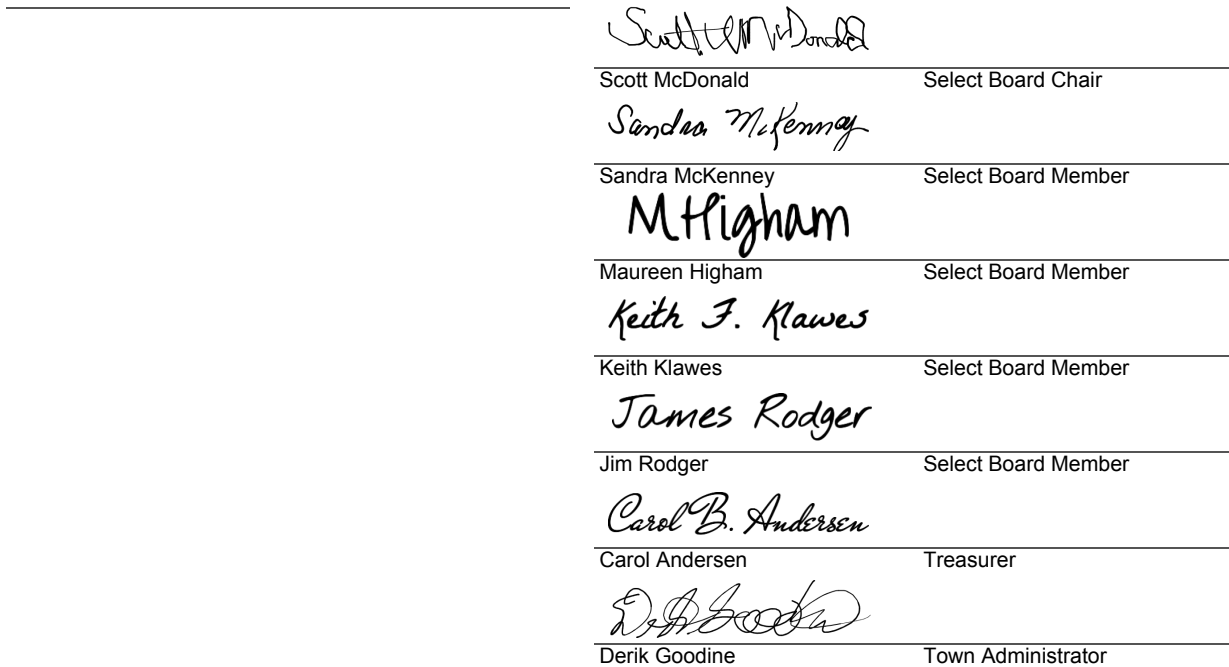 Scott McDonald
Scott McDonald Select Board Chair
Sandra McKenney
Sandra McKenney Select Board Member
M Higham
Maureen Higham Select Board Member
Keith F. Klawes
Keith Klawes Select Board Member
James Rodger
Jim Rodger Select Board Member
Carol B. Andersen
Carol Andersen Treasurer
Derik Goodine Town Administrator